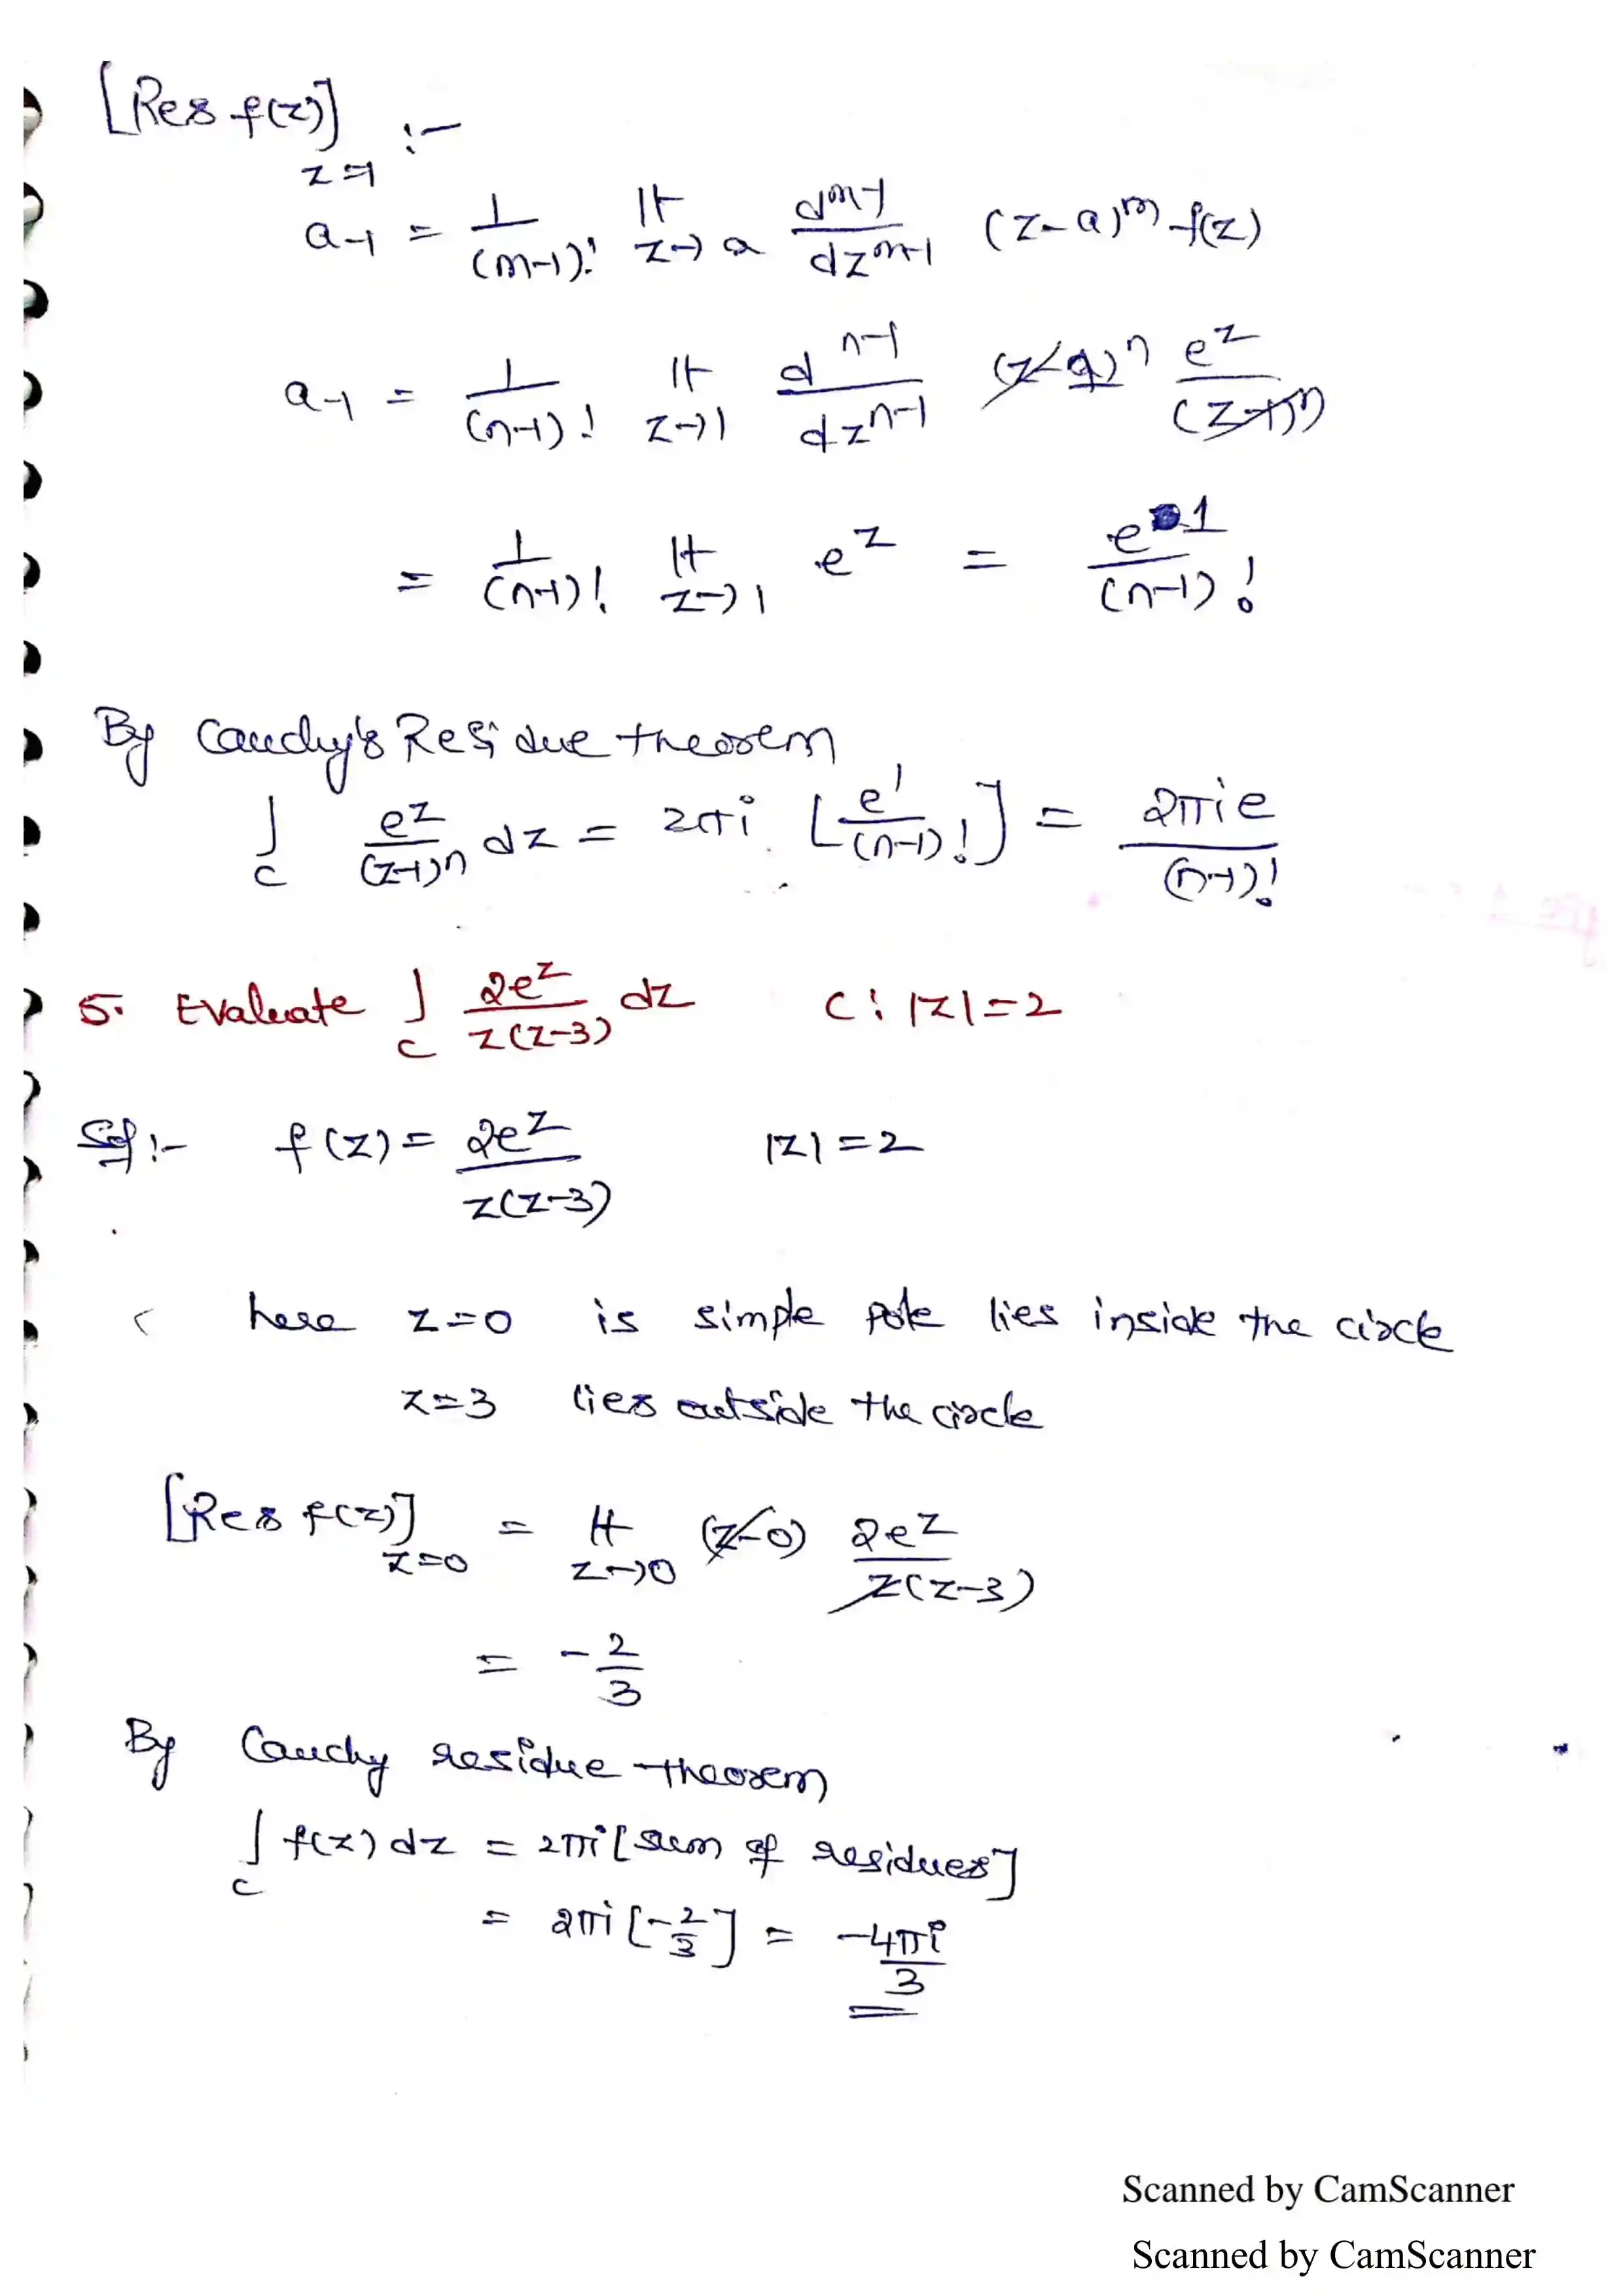 [Res f(z)] z=1 :-
a-1 = 1/(m-1)! lt z→a d^m-1/dz^m-1 (z-a)^m f(z)
a-1 = 1/(n-1)! lt z→1 d^n-1/dz^n-1 (z-1)^n e^z/(z-1)^n
= 1/(n-1)! lt z→1 e^z = e^1/(n-1)!
By Cauchy's Residue theorem
∫c e^z/(z-1)^n dz = 2πi [e^1/(n-1)!] = 2πie/(n-1)!
5. Evaluate ∫c 2e^z/z(z-3) dz C: |z|=2
Sol:- f(z) = 2e^z/z(z-3) |z|=2
here z=0 is simple pole lies inside the circle
z=3 lies outside the circle
[Res f(z)] z=0 = lt z→0 (z-0) 2e^z/z(z-3)
= -2/3
By Cauchy residue theorem
∫c f(z) dz = 2πi [sum of residues]
= 2πi [-2/3] = -4πi/3
Scanned by CamScanner
Scanned by CamScanner